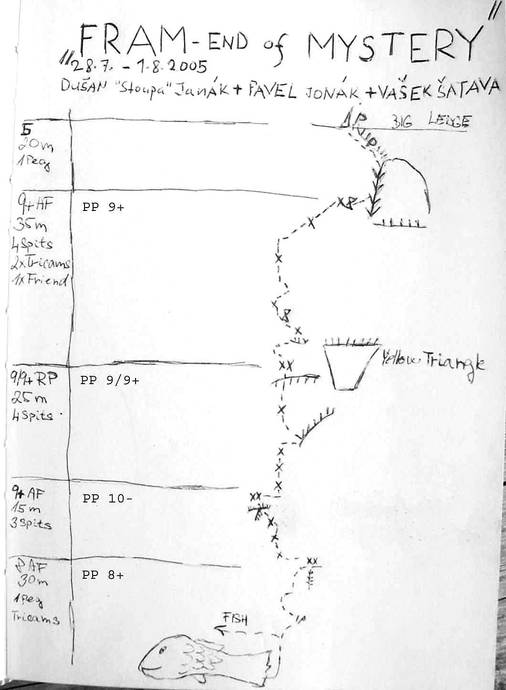 "FRAM - END of MYSTERY"
28.7. - 1.8.2005
DUŠAN "Stoupa" JANÁK + PAVEL JONÁK + VAŠEK ŠATAVA
BIG LEDGE
5
20m
1Peg
9+AF
PP 9+
35m
4Spits
2xTricams
1xFriend
Yellow Triangle
9/9+RP
PP 9/9+
25m
4Spits
9+AF
PP 10-
15m
3Spits
8AF
PP 8+
30m
1Peg
Tricams
FISH